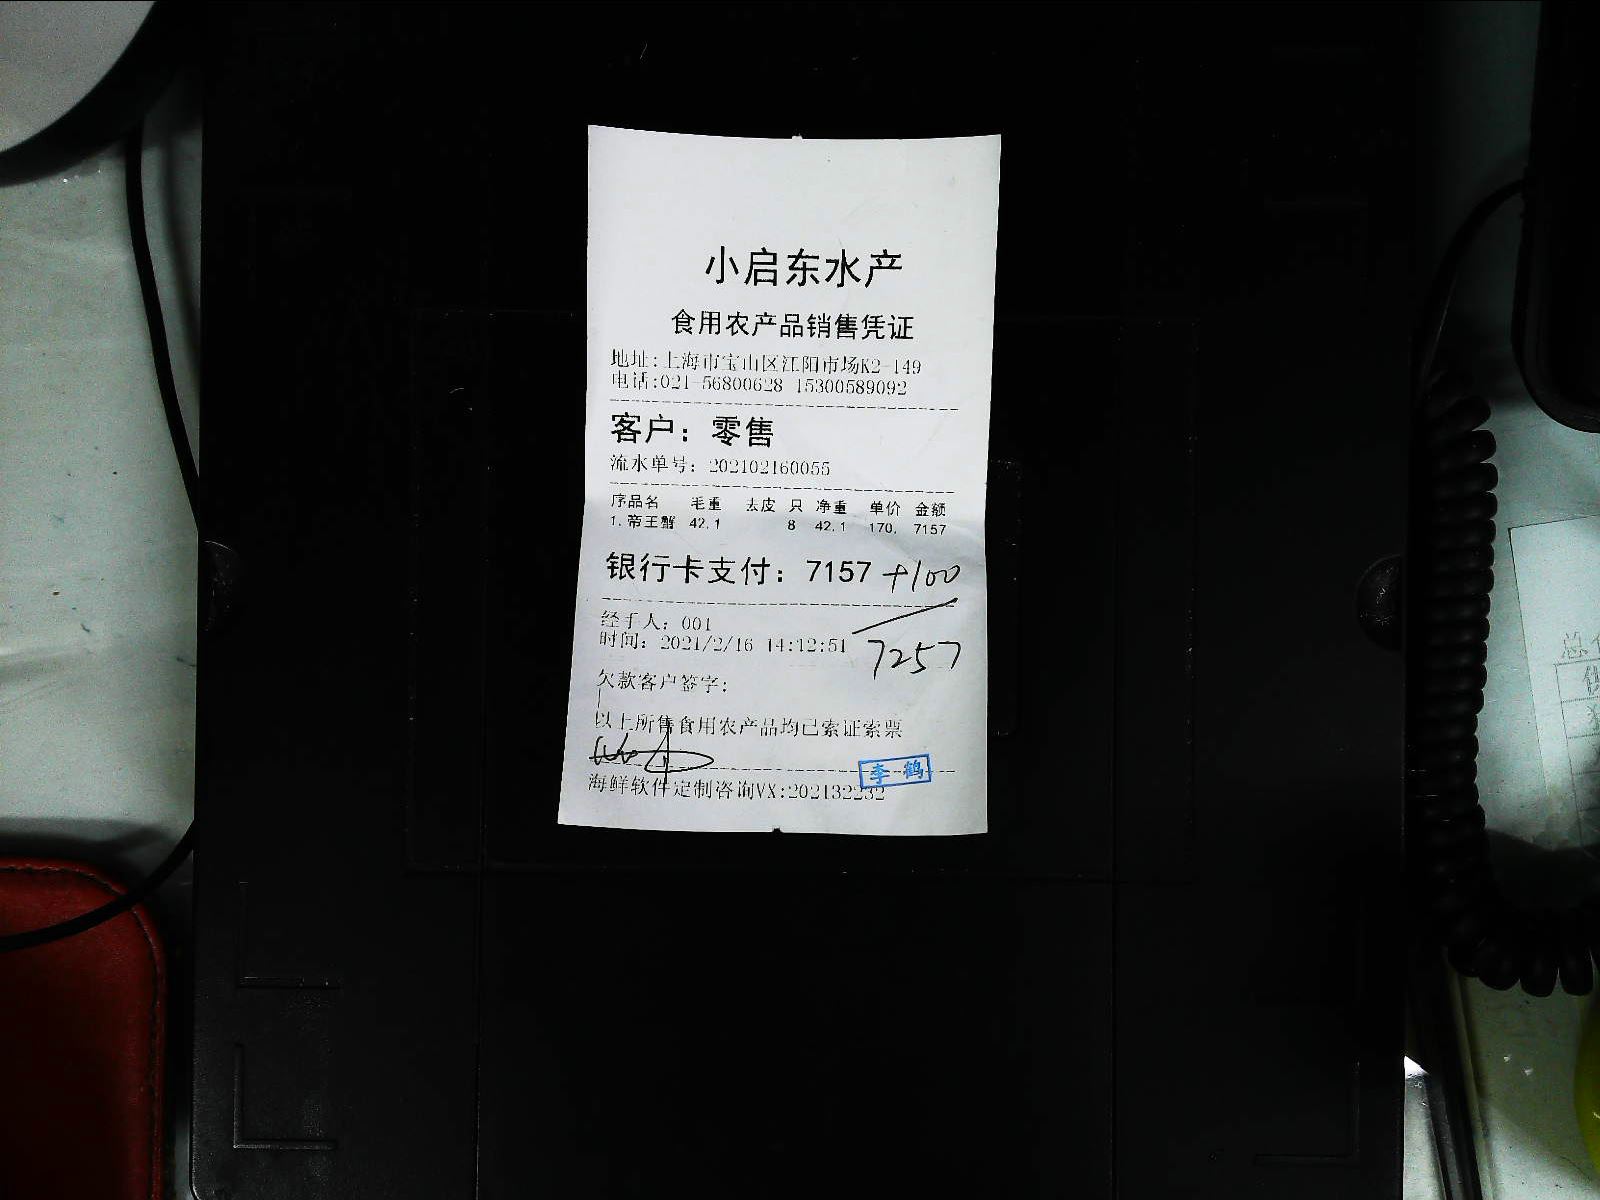 小启东水产
食用农产品销售凭证
地址:上海市宝山区江阳市场K2-149
电话:021-56800628 15300589092
客户: 零售
流水单号: 202102160055
序品名 毛重 去皮 只 净重 单价 金额
1.帝王蟹 42.1 8 42.1 170. 7157
银行卡支付: 7157 +100
经手人: 001
时间: 2021/2/16 14:12:51
7257
欠款客户签字:
以上所售食用农产品均已索证索票
李鹤
海鲜软件定制咨询VX:202132232